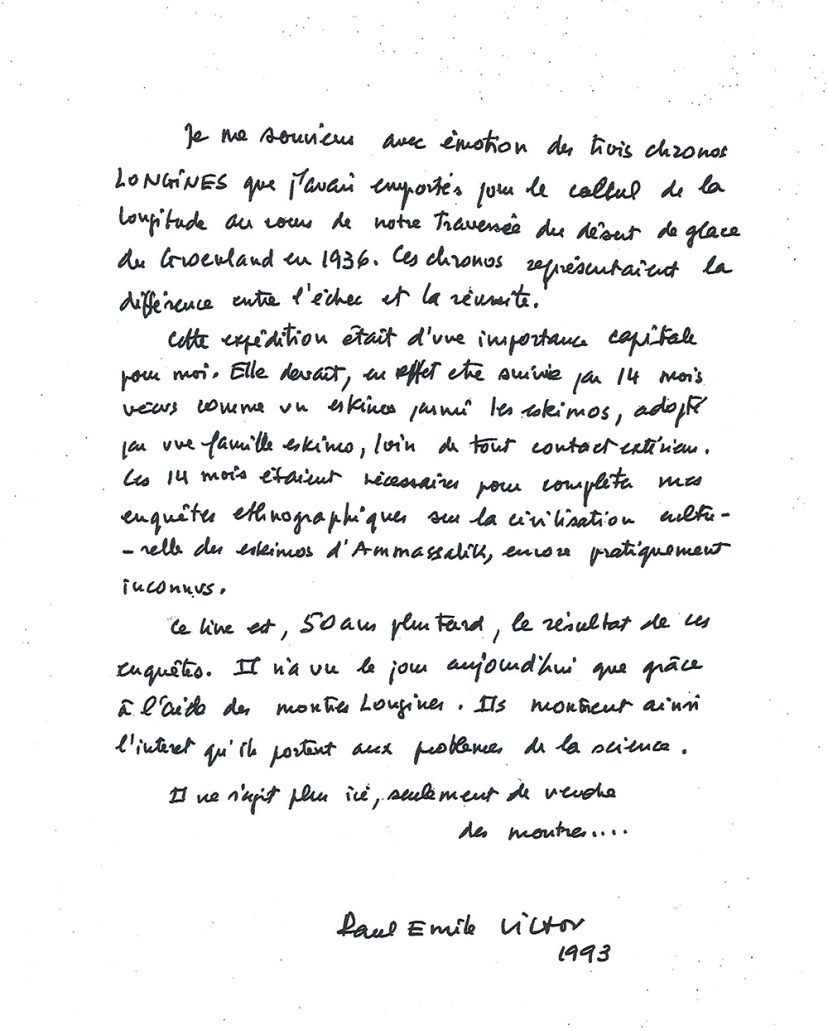 Je me souviens avec émotion des trois chronos
LONGINES que j'avais emportés pour le calcul de la
longitude au cours de notre traversée du désert de glace
du Groenland en 1936. Ces chronos représentaient la
différence entre l'échec et la réussite.
Cette expédition était d'une importance capitale
pour moi. Elle devait, en effet etre suivie par 14 mois
vécus comme un eskimo parmi les eskimos, adopté
par une famille eskimo, loin de tout contact extérieur.
Ces 14 mois étaient nécessaires pour compléter mes
enquêtes ethnographiques sur la civilisation cultu-
-relle des eskimos d'Ammassalik, encore pratiquement
inconnus.
Ce livre est, 50 ans plus tard, le résultat de ces
enquêtes. Il n'a vu le jour aujourd'hui que grâce
à l'aide des montres Longines. Ils montrent ainsi
l'interet qu'ils portent aux problemes de la science.
Il ne s'agit plus ici, seulement de vendre
des montres....
Paul Emile Victor
1993